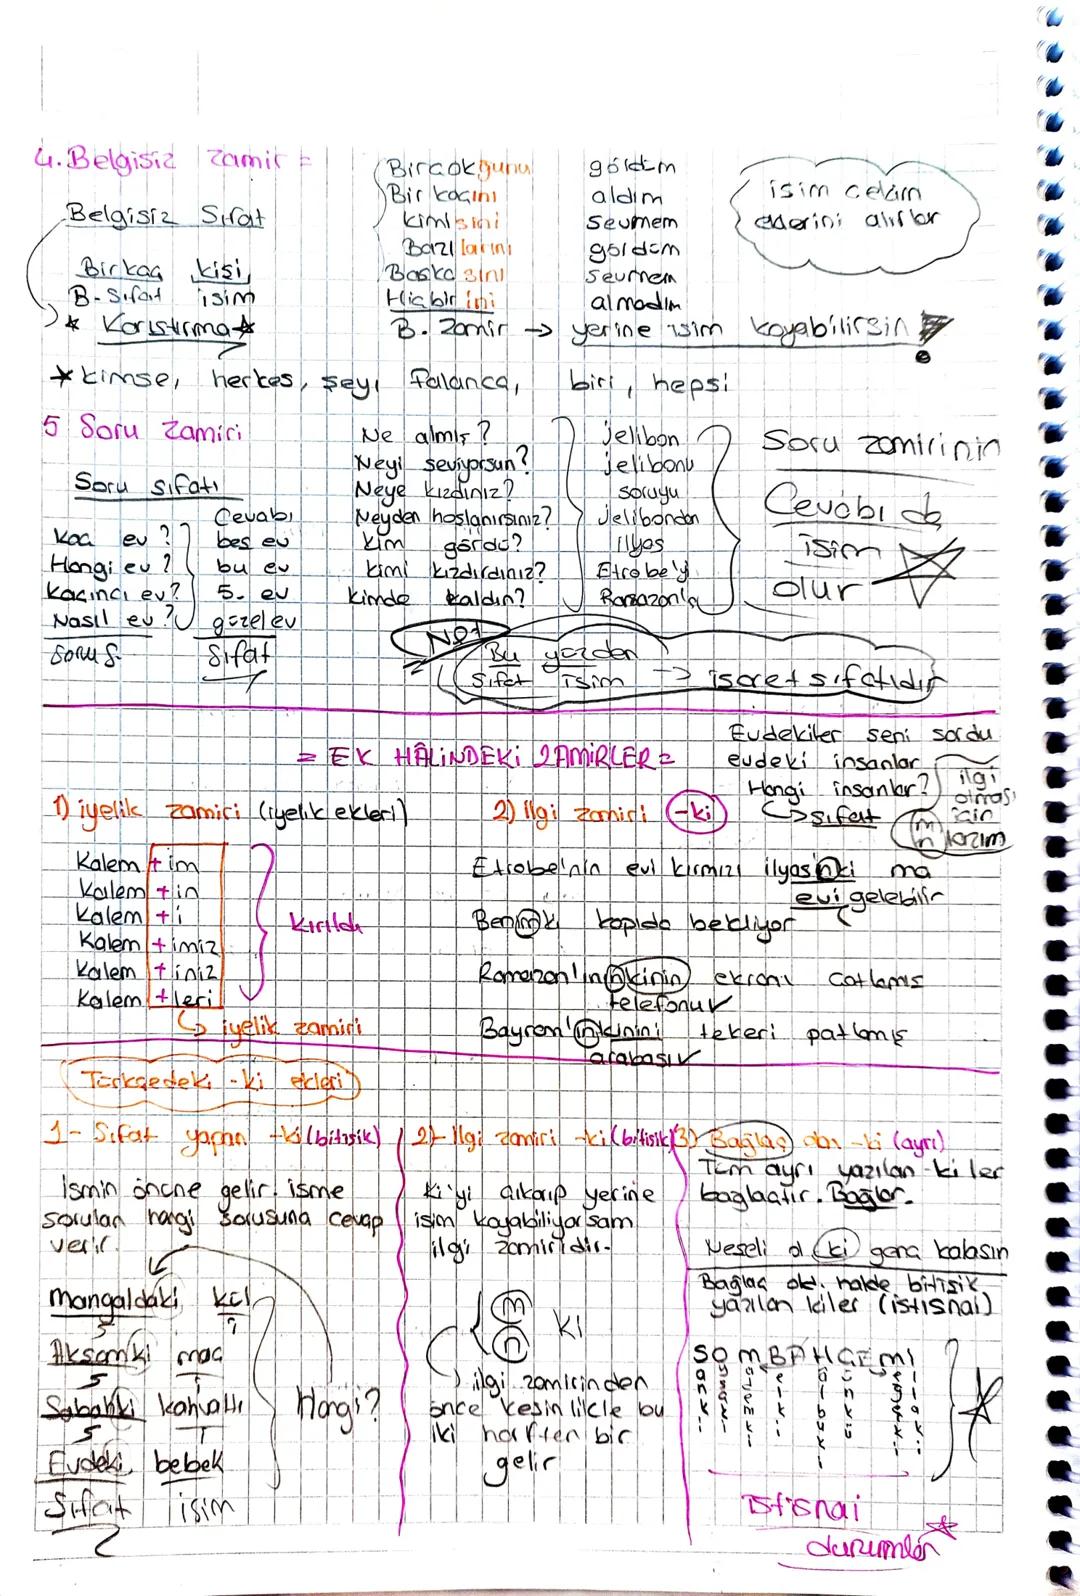 4. Belgisiz zamir =
Belgisiz Sıfat
Birkaç kişi
B. Sıfat isim
* Karıştırma *
Birçoğunu gördüm
Bir kaçını aldım
kimisini sevmem
Bazılarını gördüm
Başkasını sevmem
Hiçbirini almadım
B. zamir → yerine isim koyabilirsin !
isim çekim
eklerini alırlar
* kimse, herkes, şey, falanca, biri, hepsi
5 Soru zamiri
Soru sıfatı
Cevabı
Kaç ev ? beş ev
Hangi ev ? bu ev
Kaçıncı ev? 5. ev
Nasıl ev ? güzel ev
Soru S. Sıfat
Ne almış ? jelibon
Neyi seviyorsun? jelibonu
Neye kızdınız? soruyu
Neyden hoşlanırsınız? jelibondan
Kim gördü? ilyas
Kimi kızdırdınız? Etrabe'yi
Kimde kaldın? Ramazan'da
Soru zamirinin
Cevabı da
isim
olur
Not
Bu yazdan
Sıfat isim → işaret sıfatıdır
= EK HÂLİNDEKİ ZAMİRLER =
Evdekiler seni sordu
evdeki insanlar
Hangi insanlar?
↳ sıfat
ilgi
olması
için
m
n lazım
1) iyelik zamiri (iyelik ekleri)
Kalem + im
Kalem + in
Kalem + i
Kalem + imiz
Kalem + iniz
Kalem + leri
Kırıldı
↳ iyelik zamiri
2) ilgi zamiri -ki
Etrabe'nin evi kırmızı ilyasınki ma
evi gelebilir
Benimki kapıda bekliyor
Ramazan'ınkinin ekranı çatlamış
telefonu
Bayram'ınkinini tekeri patlamış
arabası
Türkçedeki -ki ekleri
1- Sıfat yapan -ki (bitişik)
ismin önüne gelir. isme
sorulan hangi sorusuna cevap
verir.
Mangaldaki kül
S i
Akşamki maç
S i
Sabahki kahvaltı
S i
Evdeki bebek
Sıfat isim
Hangi?
2) ilgi zamiri -ki (bitişik)
Ki'yi çıkarıp yerine
isim koyabiliyorsam
ilgi zamiridir.
m
n
ki
ilgi zamirinden
önce kesinlikle bu
iki harften bir
gelir
3) Bağlaç olan -ki (ayrı)
Tüm ayrı yazılan -ki ler
bağlaçtır. Bağlar.
Neşeli ol ki genç kalasın
Bağlaç old. halde bitişik
yazılan kiler (istisnai)
SOMBAHÇEMİ
istisnai
durumlar